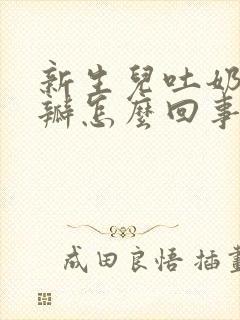 新生兒吐奶
瓣怎麼回事
成田良悟 插畫